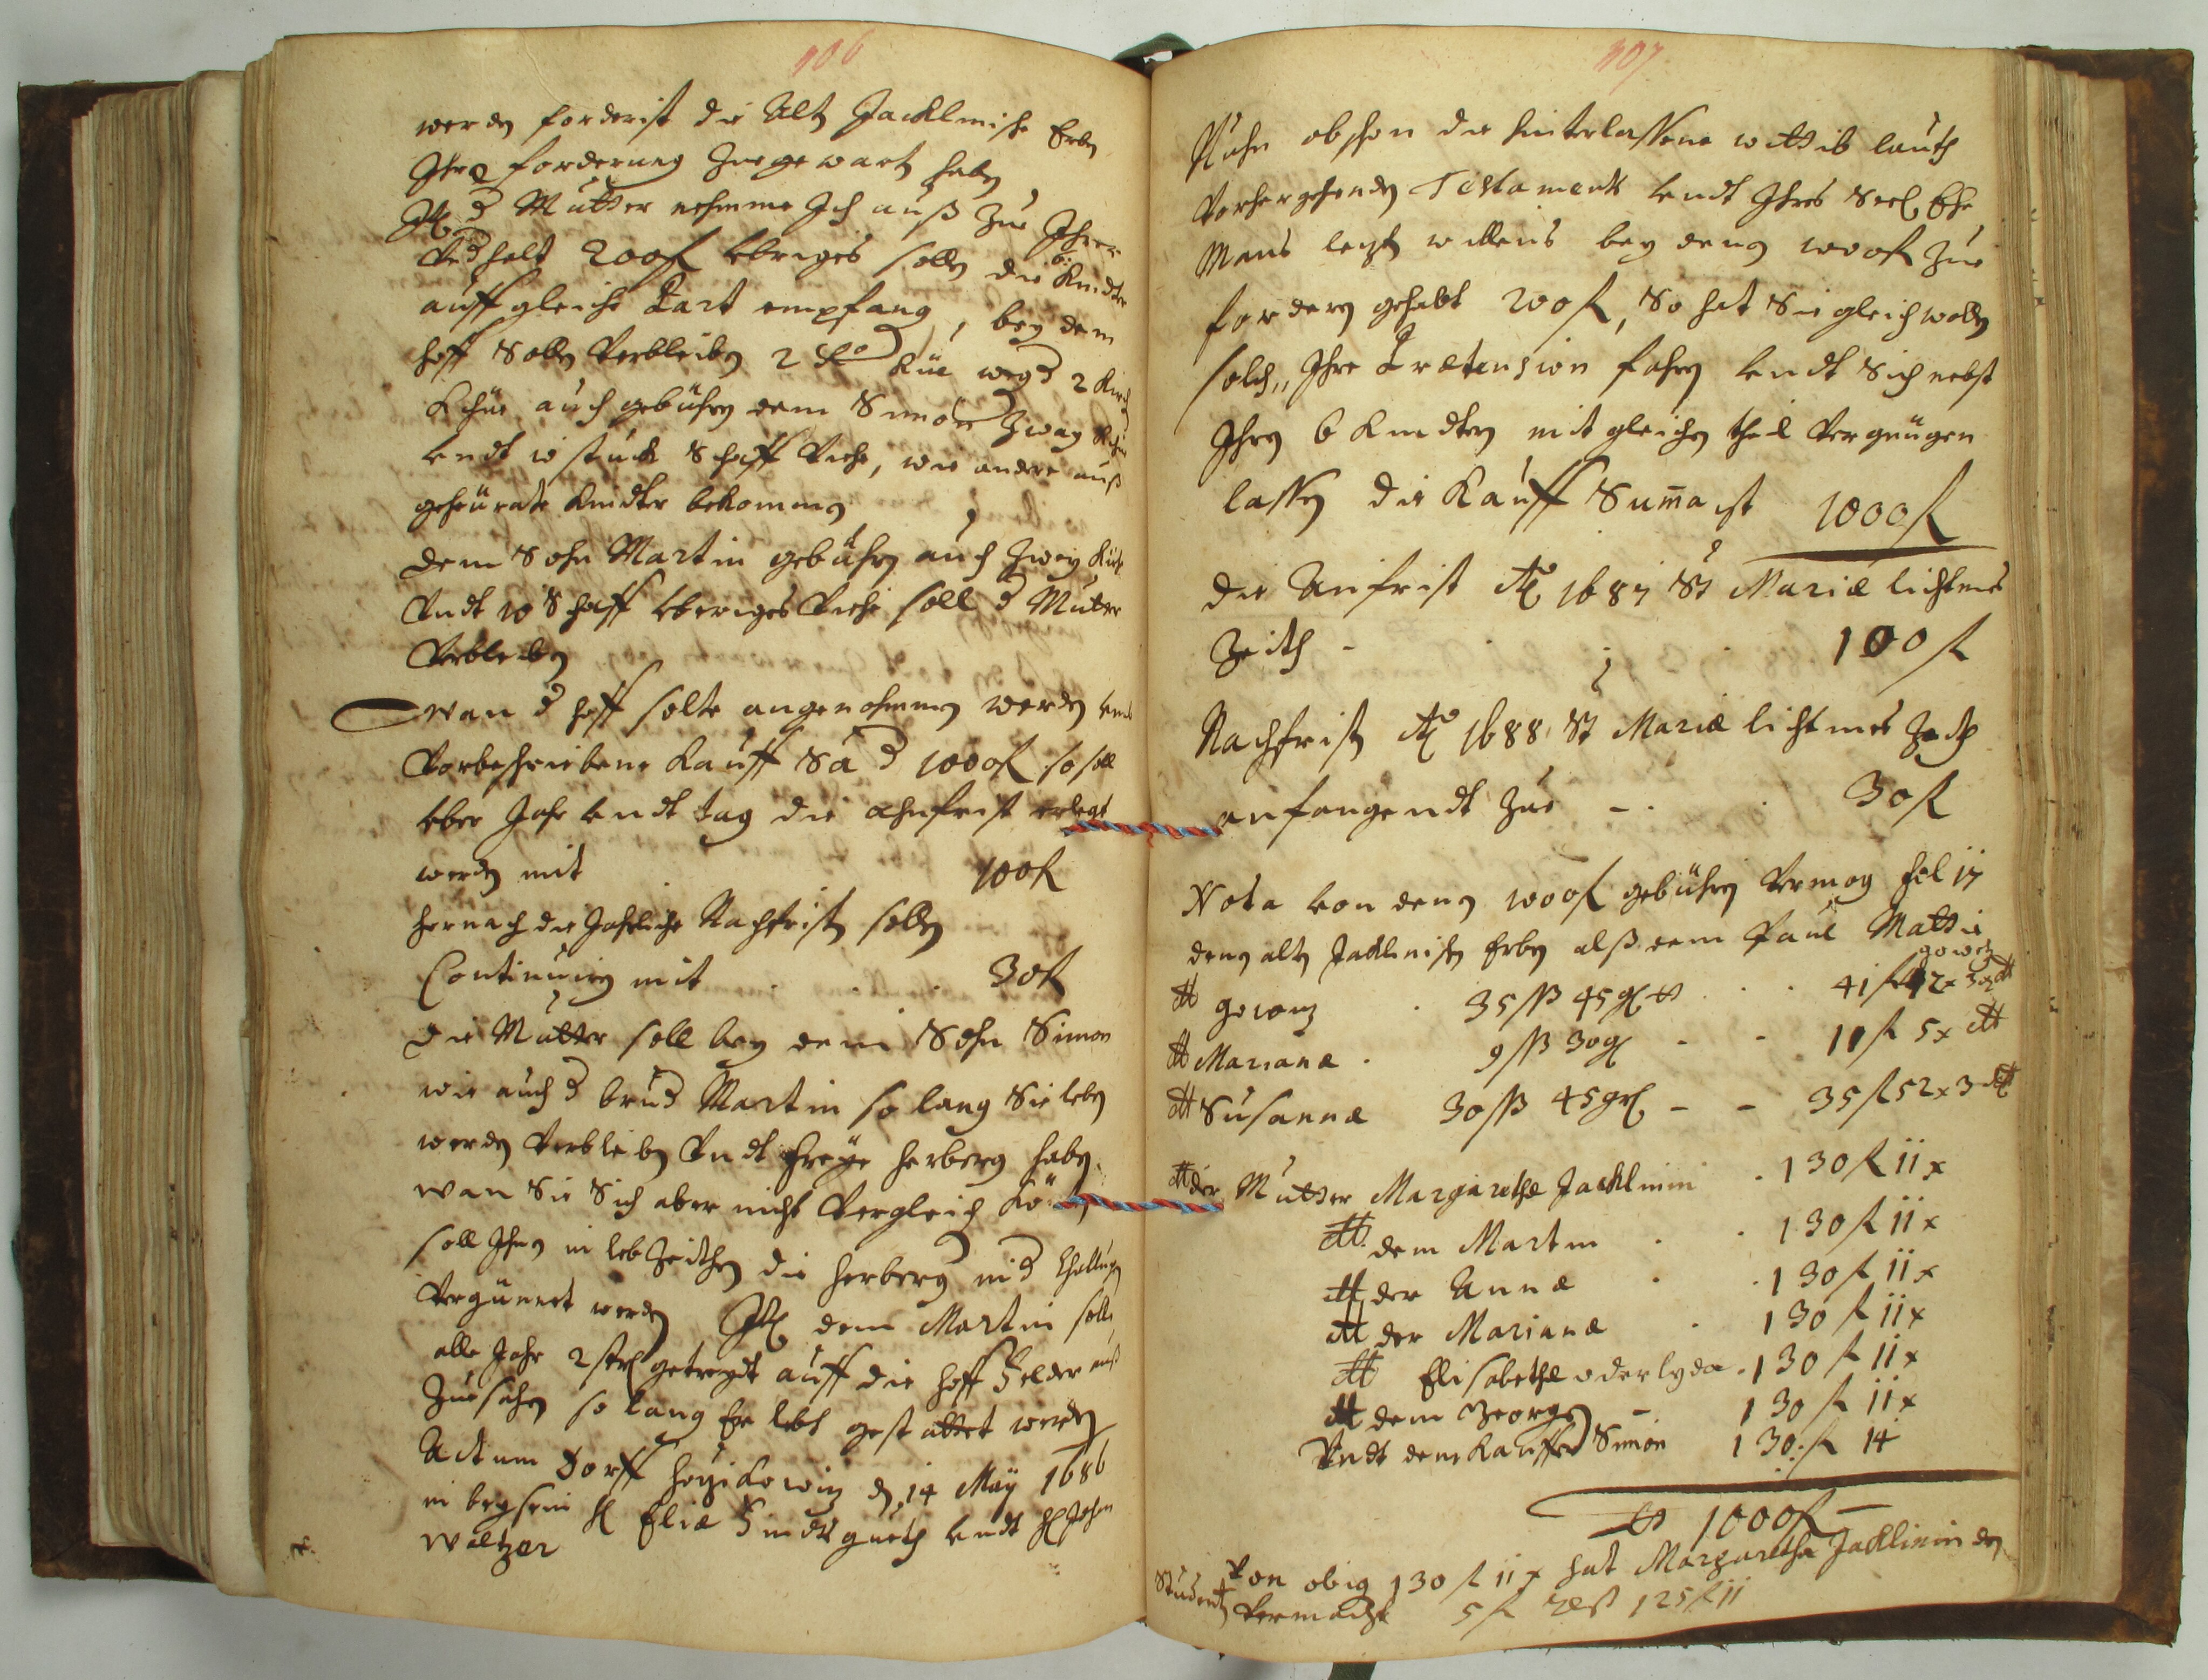 106
werden forderist die Alt Jacklinische Erben
Ihre forderung zuegewart haben,
Itl d Mutter nehmme Ich auß zue Ihrem
Vndhalt 200 fl vbriges sollen die 6 Kindter
auff gleiche Part empfang, bey dem
hoff sollen Verbleiben 2 Küe wegd 2 Kirch
Khüe auch gebühren dem Simon zway Khüe
vndt 10 stuck Schaff Viehe, wie andere auß
geheürate Kindter bekommen
dem Sohn Martin gebühren auch zwey Kühe
Vndt 10 Schaff vberiges Viehe soll d Mutter
Verbleiben
wan d hoff solte angenohmmen werden vmb
Vorbeschriebene Kauff Sa d 1000 fl so soll
vber Jahr vndt tag die Ahnfrist erlegt
werden mit 100 fl
hernach die Jahrliche Nachfrist sollen
Continuiren mit 30 fl
die Mutter soll bey dem Sohn Simon
wie auch d brud Martin so lang Sie leben
werden Verbleiben Vndt freye herberg haben
wan Sie Sich aber nicht Vergleich kö
soll Ihnen in leb Zeithen die herberg in d
Vergünnet werden Itl dem Martin solle
alle Jahr 2 strl getreydt auff die hoff Felder auß
zuesehen so lang Er lebt gestattet werden
Actum Dorff den 14 May 1686
in beysein H Eliæ Findtsguth vndt H John
Waltzer
107
Nuhn obschon die hinterlassene wittib lauth
Vorhergehenden Testaments vndt Ihres Seel Ehe
Mans letzten willens bey denen 1000 fl zue
fordern gehabt 200 fl, So hat Sie gleichwollen
solche Ihre Prætension fahren vndt Sich nebst
Ihren 6 Kindtern mit gleichen theil Vergnügen
lassen die Kauff Suma ist 1000 fl
die Anfrist Ao 1687 St Mariæ lichtmes
Zeith - 100 fl
Nachfrist Ao 1688 St Mariæ lichtmes Zeith
anfangendt zue - 30 fl
Nota von denen 1000 fl gebühren Vermog fol 17
denen alten Jacklinischen Erben alß dem Paul Mattie
gowetz
gowetz 35 ßß 45 gl 41 fl 42 x 3 d
Marianæ 9 ßß 30 gl - - 11 fl 5 x
Susannæ 30 ßß 45 grl - - 35 fl 52 x 3 d
der Mutter Margarethæ Jacklinin 130 fl 11 x
dem Martin 130 fl 11 x
der Annæ 130 fl 11 x
der Marianæ 130 fl 11 x
Elisabethæ oder lyda 130 fl 11 x
dem Georgen - 130 fl 11 x
Vndt dem Kauffer Simon 130 fl 14
1000 fl
Von obig 130 fl 11 x hat Margaretha Jacklinin den
Studenten Vermacht 5 fl Rest 125 fl 11